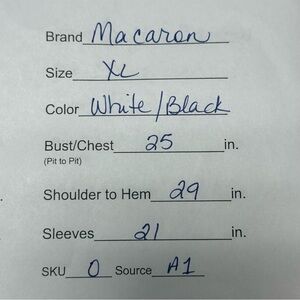 Brand Macaron
Size XL
Color White/Black
Bust/Chest 25 in.
(Pit to Pit)
Shoulder to Hem 29 in.
Sleeves 21 in.
SKU 0 Source A1